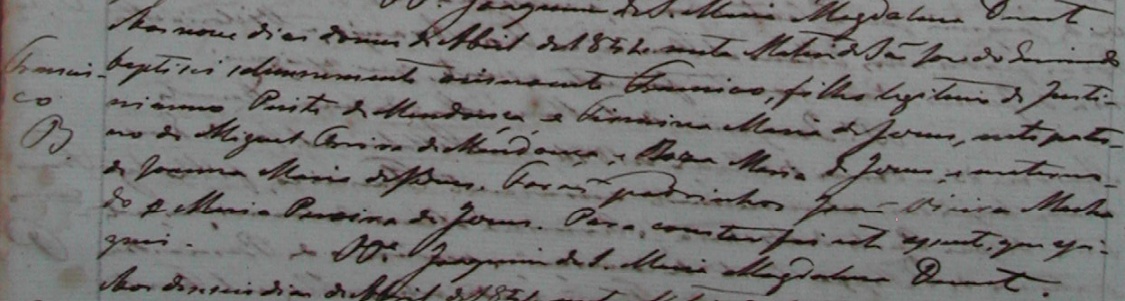 Vº. Joaquim de S. Maria Magdalena Duarte
Aos nove dias do mes de Abril de 1854 nesta Matriz de São José do
Francis- baptisei solemnemente o innocente Francisco, filho legitimo de Justi-
co niano de Mendonça e Firmina Maria de Jesus, neto pater-
B. no de Miguel de Mendonça, e Rosa Maria de Jesus, e materno
de Joanna Maria de Jesus. Forão padrinhos José Vieira Macha
do e Maria Pereira de Jesus. Para constar fiz este assento, que assi-
gnei. Vº. Joaquim de S. Maria Magdalena Duarte.
Aos dias de Abril de 1854 nesta